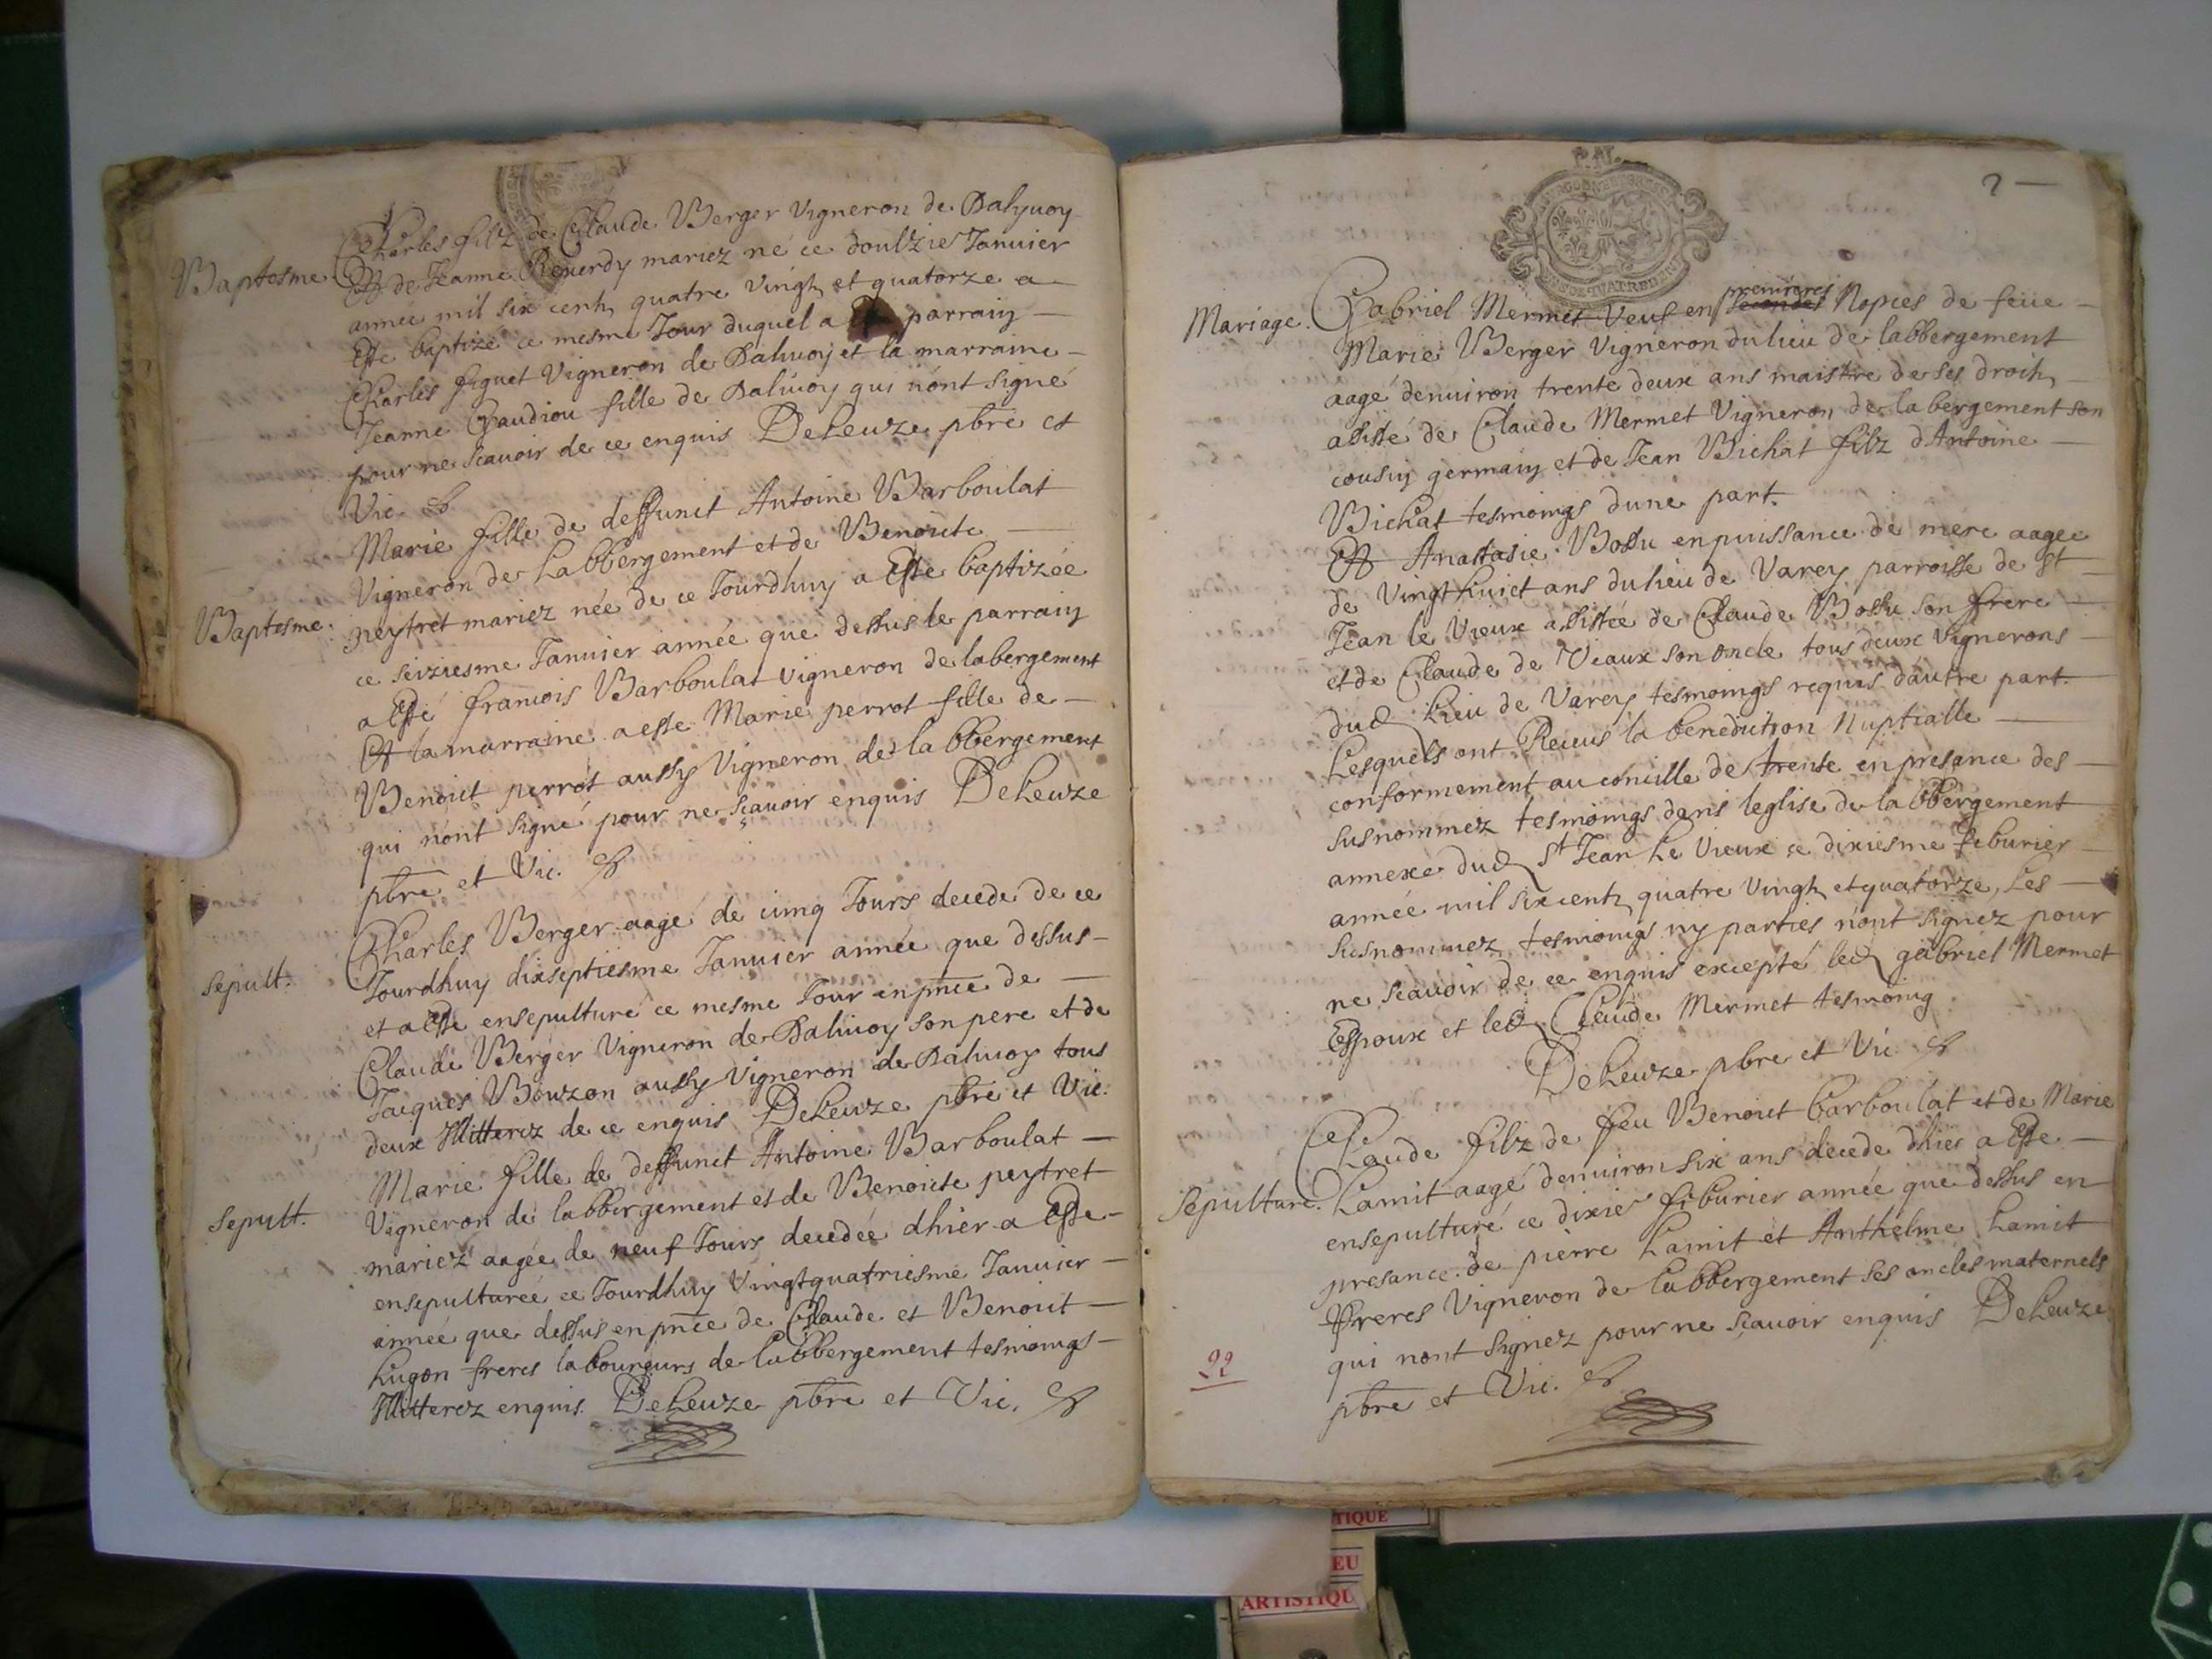 Baptesme
Charles filz de Claude Berger Vigneron de Daluoy
Et de Jeanne Reuerdy mariez né ce doulzie Januier
année mil six cent quatre Vingt et quatorze a
Este baptizé ce mesme Jour duquel a parrain
Charles figuet Vigneron de Daluoy et la marraine
Jeanne Gaudiou fille de Daluoy qui nont signé
pour ne scauoir de ce enquis DeLeuze pbre et
Vic.
Baptesme.
Marie fille de deffunct Antoine Barboulat
Vigneron de Labbergement et de Benoicte
peytret mariez née de ce Jourdhuy a Este baptizée
ce seiziesme Januier année que dessus le parrain
a Esté francois Barboulat vigneron de labergement
Et la marraine a esté Marie perrot fille de
Benoict perrot aussy Vigneron de labbergement
qui nont signé pour ne sçauoir enquis DeLeuze
pbre et Vic.
sepult.
Charles Berger aagé de cinq Jours decedé de ce
Jourdhuy dixseptiesme Januier année que dessus
et a Esté ensepulturé ce mesme Jour en pnce de
Claude Berger Vigneron de Daluoy son pere et de
Jacques Bouzon aussy vigneron de Daluoy tous
deux Illitterez de ce enquis DeLeuze pbre et Vic.
sepult.
Marie fille de deffunct Antoine Barboulat
Vigneron de labbergement et de Benoicte peytret
mariez aagée de neuf Jours decedée dhier a Esté
ensepulturée ce Jourdhuy Vingtquatriesme Januier
année que dessus en pnce de Claude et Benoict
Lugon freres laboureurs de labbergement tesmoings
Illitterez enquis. DeLeuze pbre et Vic.
2
Mariage.
premieres
Gabriel Mermet Veuf en secondes Nopces de feüe
Marie Berger Vigneron du lieu de labbergement
aagé denuiron trente deux ans maistre de ses droits
assisté de Claude Mermet Vigneron de labergement son
cousin germain et de Jean Bichat filz dAntoine
Bichat tesmoings dune part.
Et Anastasie Bossu en puissance de mere aagee
de Vingthuict ans du lieu de Varey parroisse de st
Jean le Vieux assistée de Claude Bossu son frere
et de Claude de Veaux son oncle tous deux Vignerons
dud Lieu de Varey tesmoings requis dautre part.
Lesquels ont Receus la benediction Nuptialle
conformement au concille de trente en presance des
susnommez tesmoings dans leglise de labbergement
annexe dud St Jean Le Vieux ce dixiesme feburier
année mil sixcent quatre Vingt et quatorze, Les
susnommez tesmoings ny parties nont signez pour
ne scauoir de ce enquis excepté led gabriel Mermet
Espoux et led Claude Mermet tesmoing
DeLeuze pbre et Vic
Sepulture.
Claude filz de feu Benoict barboulat et de Marie
Lamit aagé denuiron six ans decede dhier a Este
ensepulturé ce dixie feburier année que dessus en
presance de pierre Lamit et Anthelme Lamit
freres Vigneron de Labbergement ses oncles maternels
qui nont signez pour ne sçauoir enquis DeLeuze
pbre et Vic.
22
TIQUE
EU
ARTISTIQU